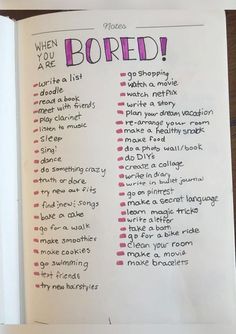 Notes
WHEN
YOU
ARE
BORED!
write a list
doodle
read a book
meet with friends
play clarinet
listen to music
sleep
sing!
dance
do something crazy
truth or dare
try new out fits
find new songs
bake a cake
go for a walk
make smoothies
make cookies
go swimming
text friends
try new hairstyles
go shopping
watch a movie
watch netflix
write a story
plan your dream vacation
re-arrange your room
make a healthy snack
make food
do a photo wall/book
do DIYs
create a collage
write in diary
write in bullet journal
go on pintrest
make a secret language
learn magic tricks
write a letter
take a bath
go for a bike ride
clean your room
make a movie
make bracelets